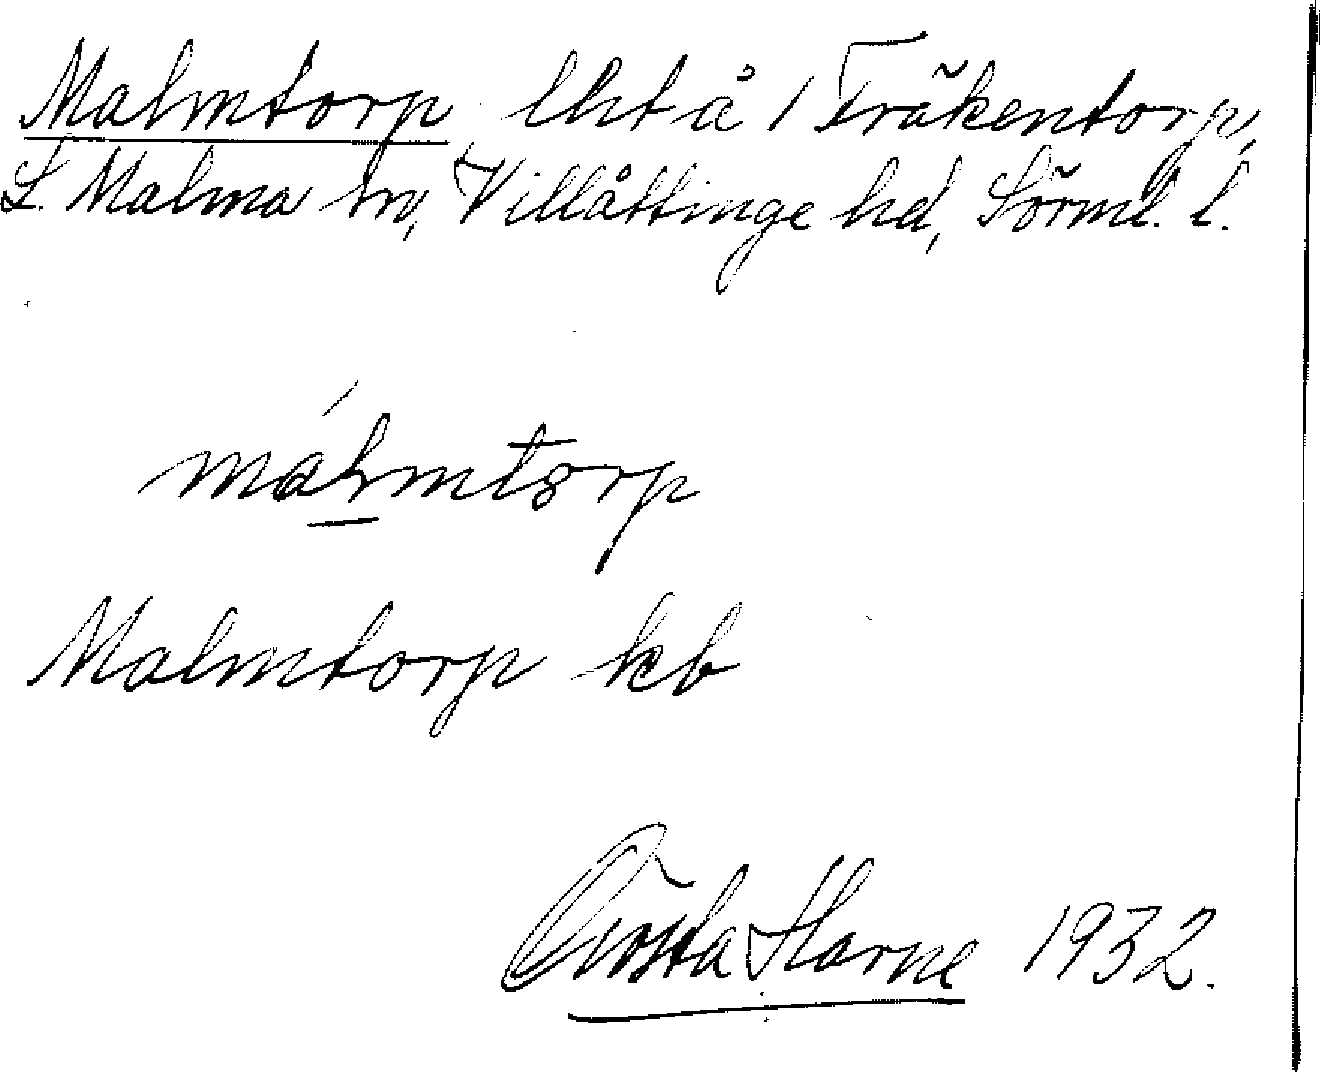 Malmtorp lht å 1 Träkentorp,
L. Malma sn, Villåttinge hd, Sörml. l.
málmtorp
Malmtorp kb
Gösta Harne 1932.